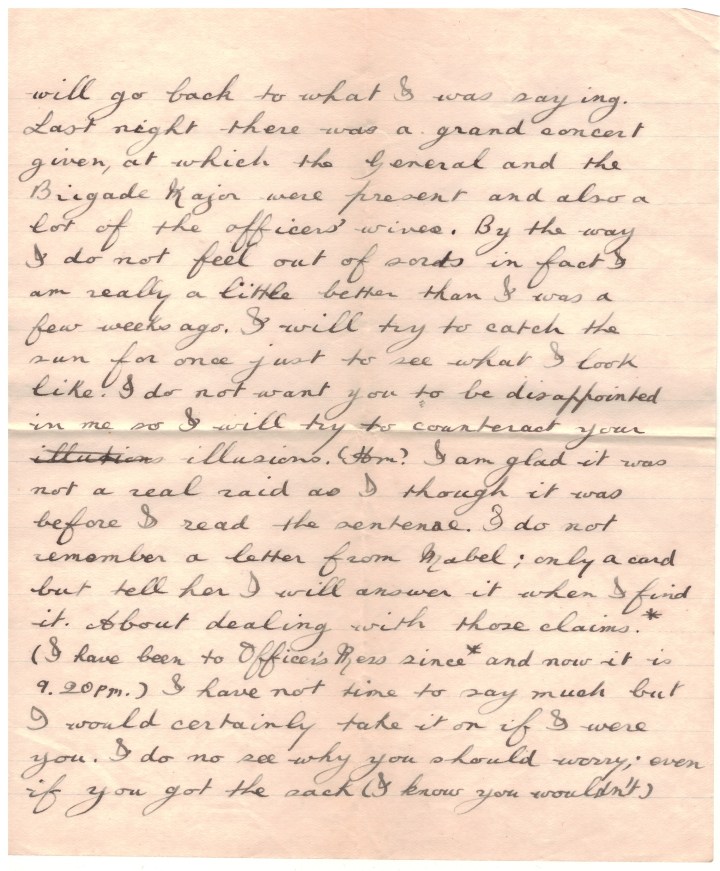 will go back to what I was saying.
Last night there was a grand concert
given, at which the General and the
Brigade Major were present and also a
lot of the officers' wives. By the way
I do not feel out of sords in fact I
am really a little better than I was a
few weeks ago. I will try to catch the
sun for once just to see what I look
like. I do not want you to be disappointed
in me so I will try to counteract your
illutions illusions. (Hm? I am glad it was
not a real raid as I though it was
before I read the sentence. I do not
remember a letter from Mabel; only a card
but tell her I will answer it when I find
it. About dealing with those claims.*
(I have been to Officer's Mess since* and now it is
9.20pm.) I have not time to say much but
I would certainly take it on if I were
you. I do no see why you should worry; even
if you got the sack (I know you wouldn't)